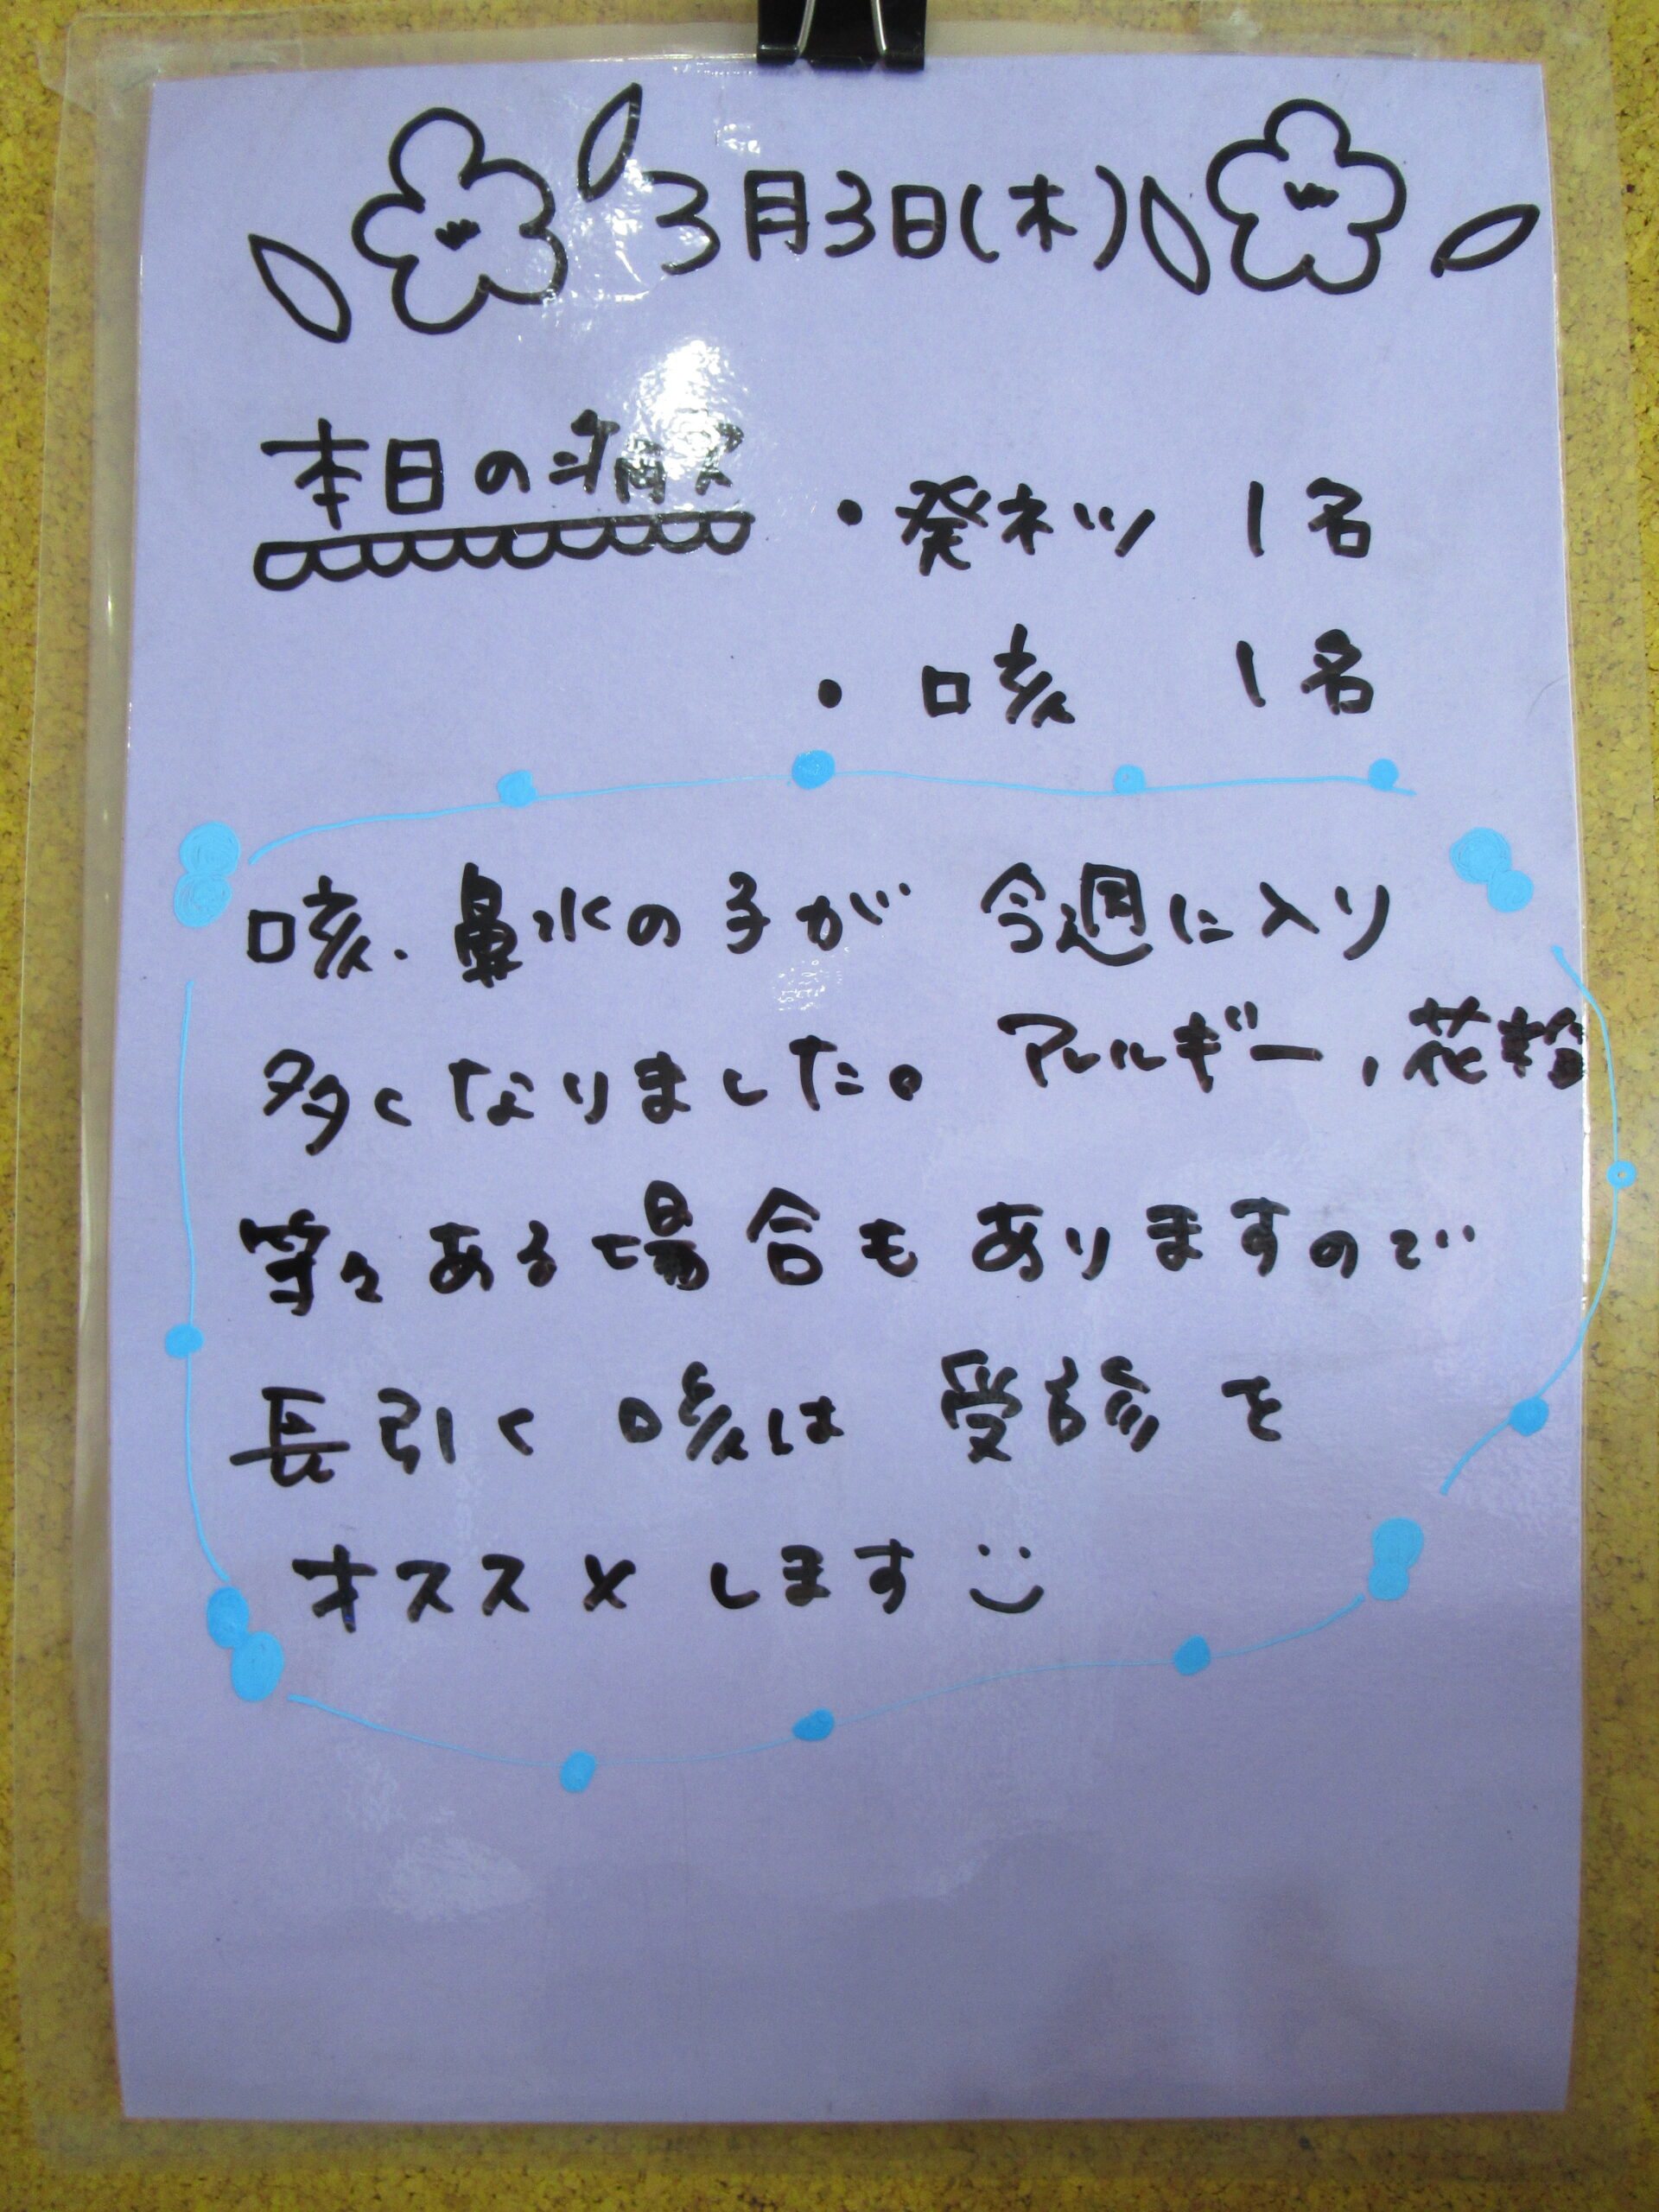 3月3日(木)
本日の病欠
・発ネツ 1名
・咳 1名
咳、鼻水の子が 今週に入り
多くなりました。アレルギー、花粉
等々ある場合もありますので
長引く咳は 受診を
オススメします